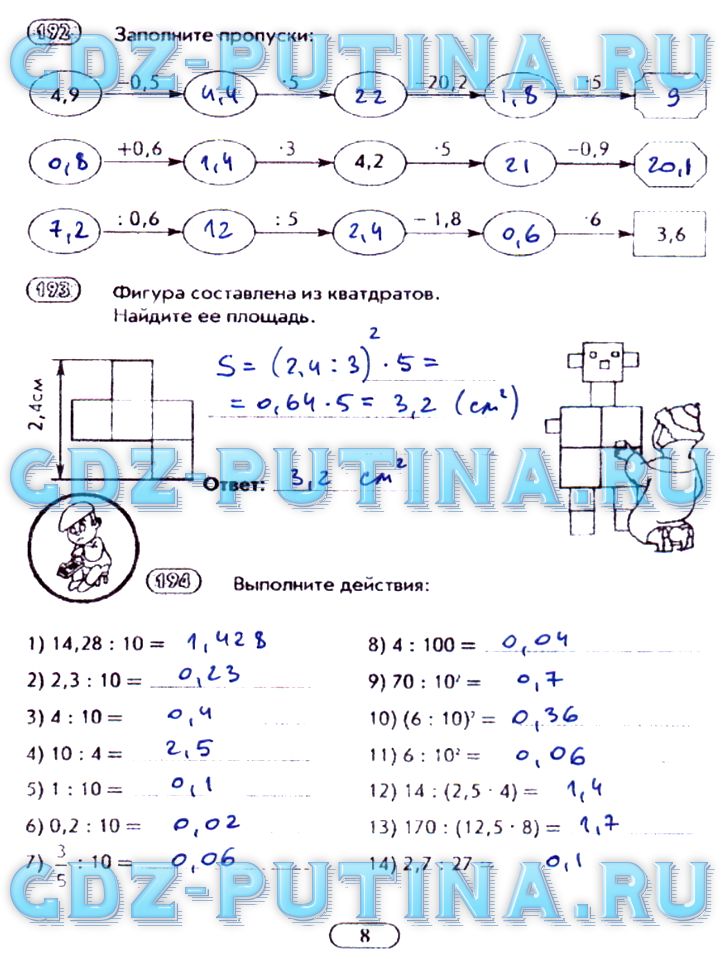 192 Заполните пропуски:
GDZ-PUTINA.RU
4,9 −0,5 4,4 ·5 22 −20,2 1,8 ·5 9
0,8 +0,6 1,4 ·3 4,2 ·5 21 −0,9 20,1
7,2 : 0,6 12 : 5 2,4 − 1,8 0,6 ·6 3,6
193 Фигура составлена из кватдратов.
Найдите ее площадь.
2,4см
S = (2,4 : 3)² · 5 =
= 0,64 · 5 = 3,2 (см²)
GDZ-PUTINA.RU
Ответ: 3,2 см²
194 Выполните действия:
1) 14,28 : 10 = 1,428
2) 2,3 : 10 = 0,23
3) 4 : 10 = 0,4
4) 10 : 4 = 2,5
5) 1 : 10 = 0,1
6) 0,2 : 10 = 0,02
7) 3/5 : 10 = 0,06
8) 4 : 100 = 0,04
9) 70 : 10² = 0,7
10) (6 : 10)² = 0,36
11) 6 : 10² = 0,06
12) 14 : (2,5 · 4) = 1,4
13) 170 : (12,5 · 8) = 1,7
14) 2,7 : 27 = 0,1
GDZ-PUTINA.RU
8